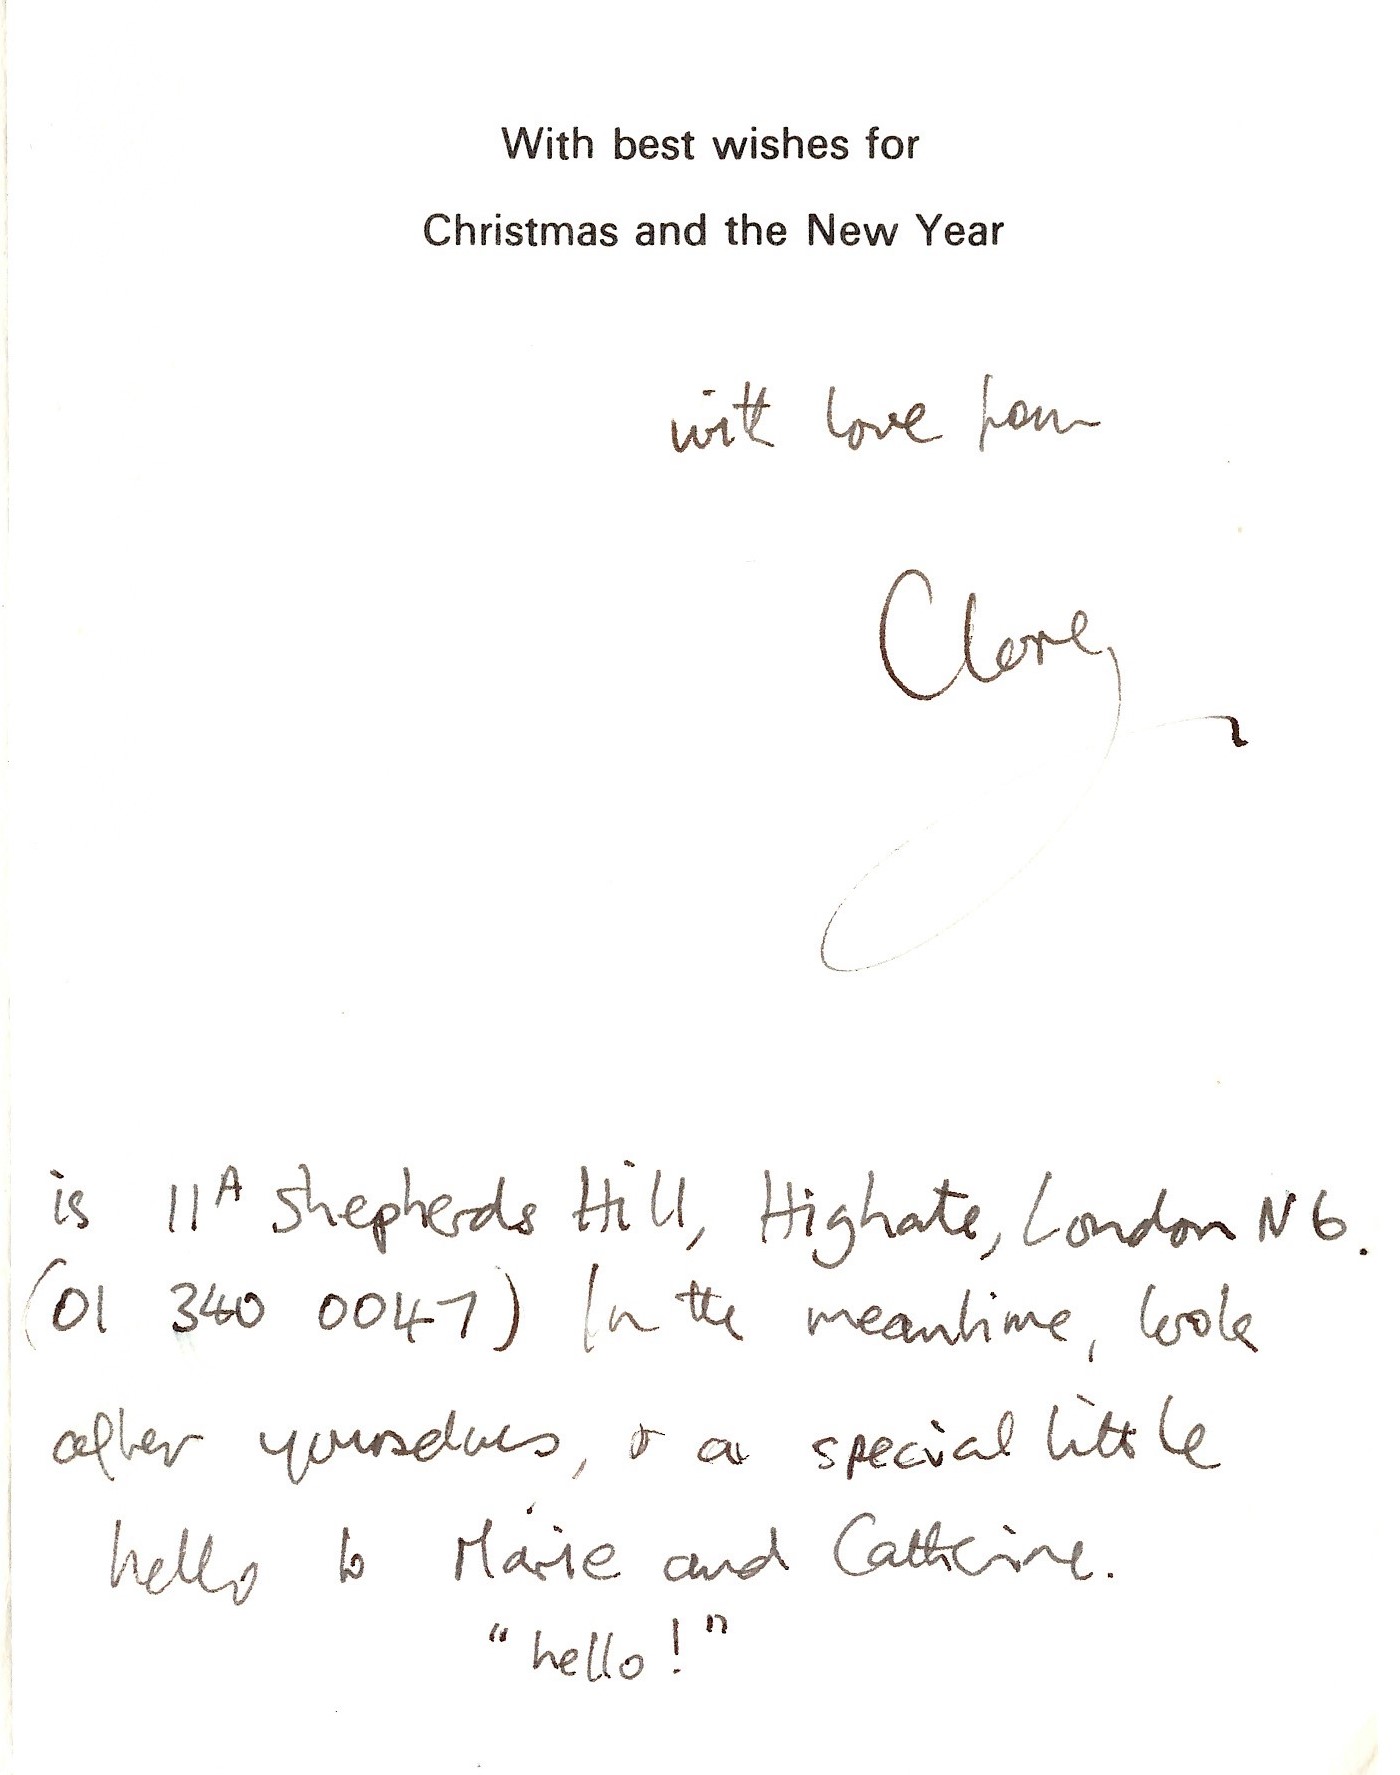 With best wishes for
Christmas and the New Year
with love from
is 11A Shepherds Hill, Highate, London N6.
(01 340 0047) In the meantime, look
after yourselves, & a special little
hello to Marie and Catherine.
"hello!"